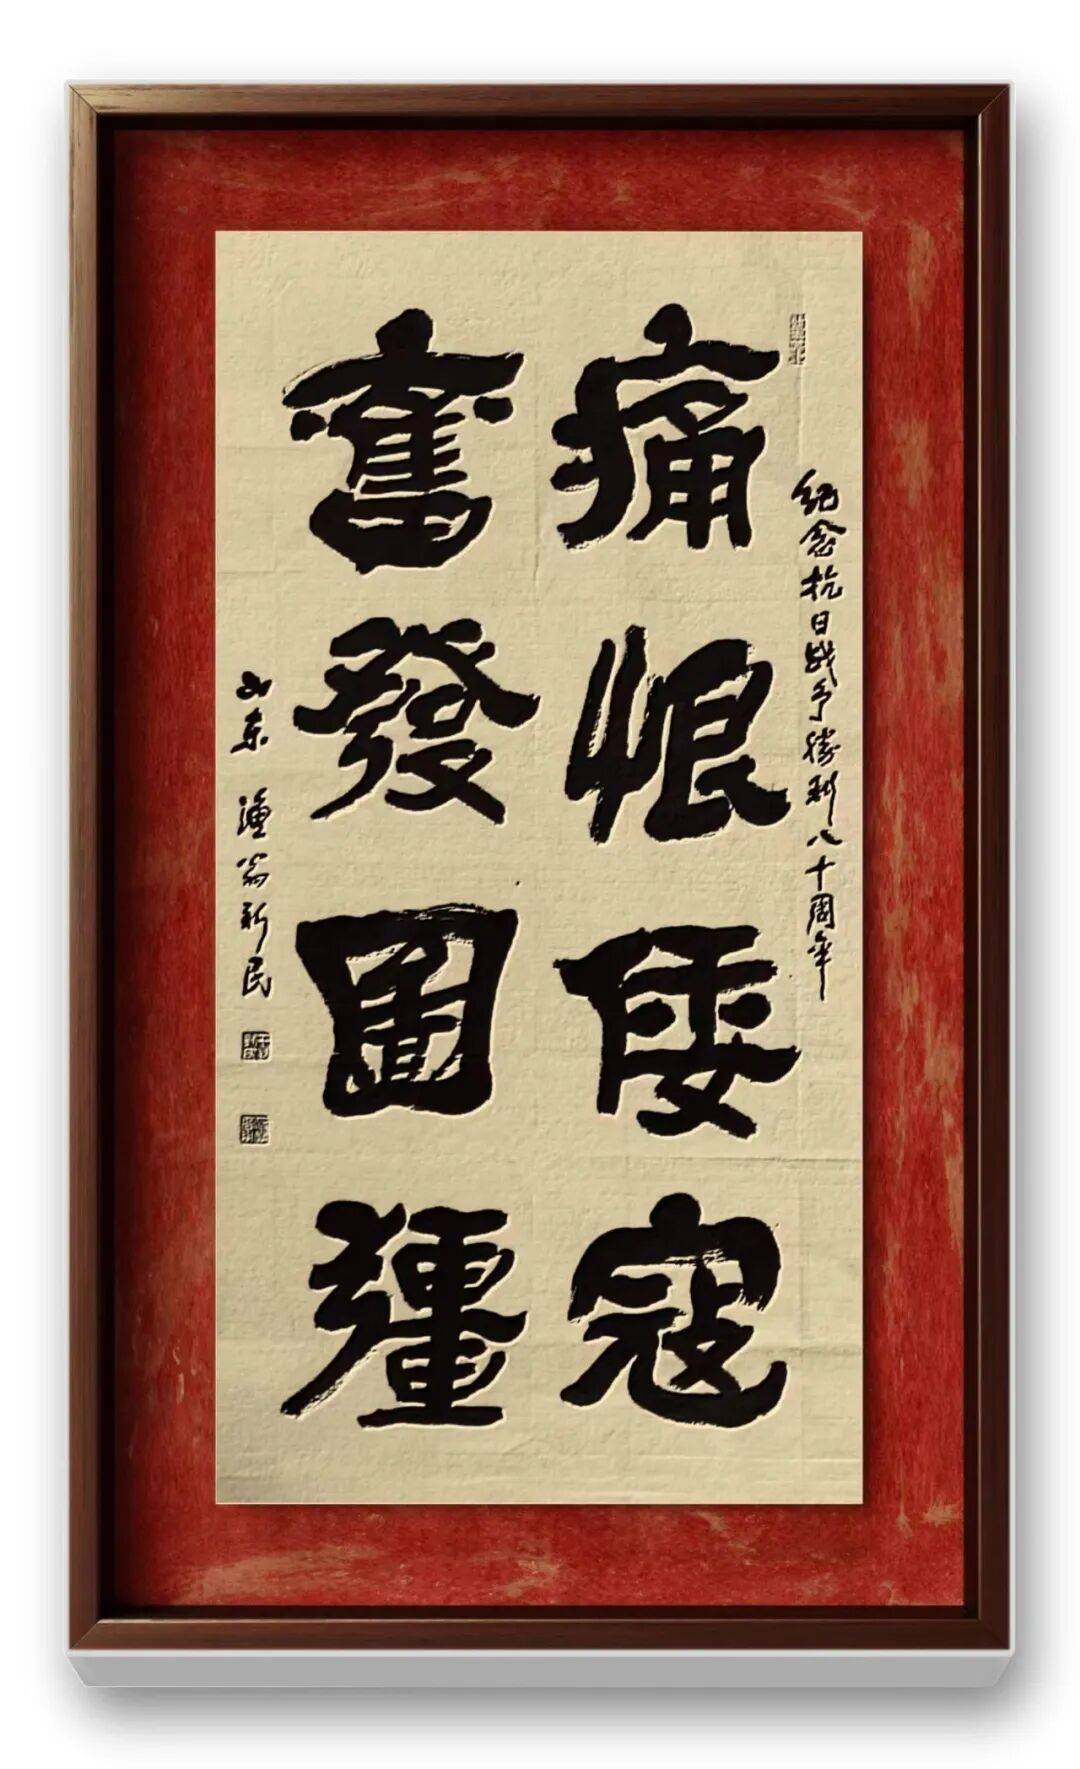 纪念抗日战争胜利八十周年
痛恨倭寇
奮發圖彊
山东 渔翁新民